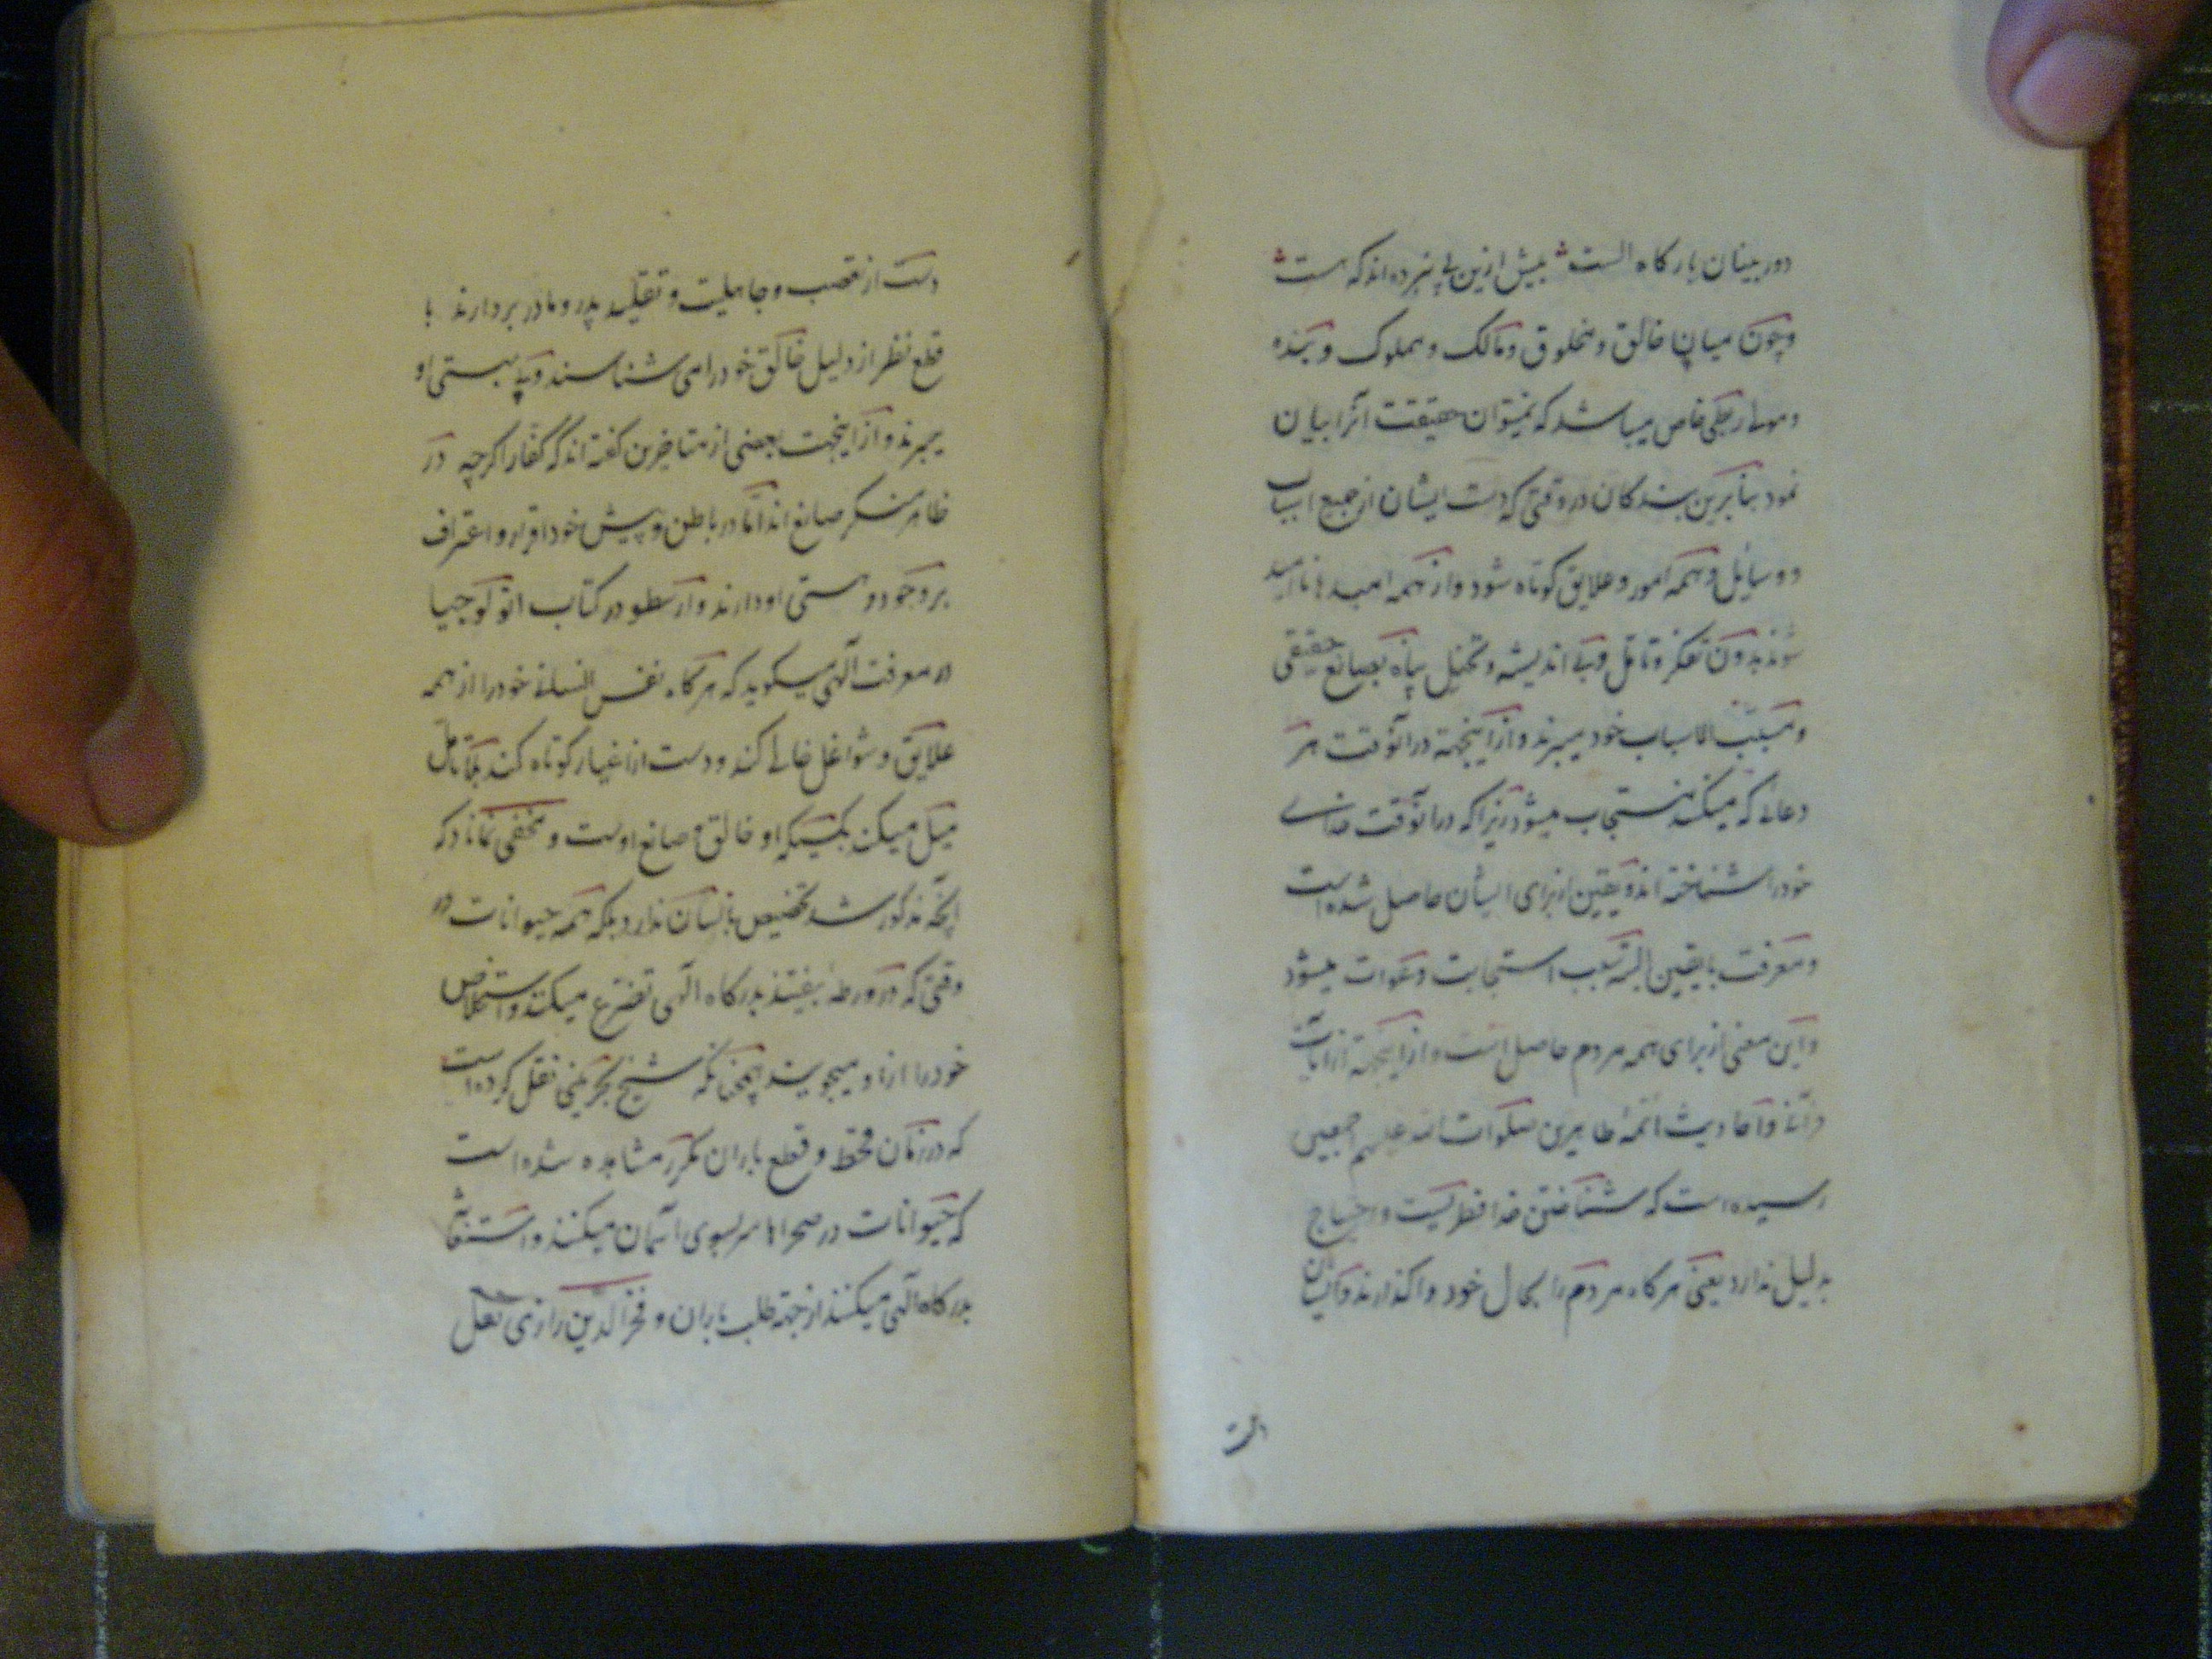 دوربینان بارگاه الست بیش ازین پی نبرده‌اند که هست
و چون میان خالق و مخلوق و مالک و مملوک و بنده
و مولی ربطی خاص میباشد که نمیتوان حقیقت آنرا بیان
نمود بنابرین بندگان در وقتی که دست ایشان از جمیع اسباب
و وسایل و همه امور و علایق کوتاه شود و از همه امیدها ناامید
شوند بدون تفکر و تامل و بی اندیشه و تخیل پناه بصانع حقیقی
و مسبب الاسباب خود میبرند و از اینجهة در آنوقت هر
دعائی که میکنند مستجاب میشود زیرا که در آنوقت خدای
خود را شناخته‌اند و یقین از برای ایشان حاصل شده است
و معرفت با یقین البته سبب استجابت دعوات میشود
و این معنی از برای همه مردم حاصل است و از اینجهة از آیات
قرآنی و احادیث ائمه طاهرین صلوات الله علیهم اجمعین
رسیده است که شناختن خدا فطریست و احتیاج
بدلیل ندارد یعنی هرگاه مردم را بحال خود واگذارند و ایشان
دست از تعصب و جاهلیت و تقلید پدر و مادر بردارند با
قطع نظر از دلیل خالق خود را می شناسند و پی بهستی او
میبرند و از اینجهت بعضی از متاخرین گفته‌اند که کفار اگرچه در
ظاهر منکر صانع‌اند اما در باطن و پیش خود اقرار و اعتراف
بر وجود و هستی او دارند و ارسطو در کتاب اثولوجیا
در معرفت آلهی میگوید که هرگاه نفس انسانی خود را از همه
علایق و شواغل خالی کند و دست از اغیار کوتاه کند بلاتامل
میل میکند بکسیکه او خالق و صانع اوست و مخفی نماناد که
آنچه مذکور شد تخصیص بانسان ندارد بلکه همه حیوانات در
وقتی که در ورطه بیفتند بدرگاه الهی تضرع میکنند و استخلاص
خود را از او میجویند چنانکه شیخ نقل کرده است
که در زمان قحط و قطع باران مکرر مشاهده شده است
که حیوانات در صحراها سر بسوی آسمان میکنند و استغاثه
بدرگاه آلهی میکنند از جهة طلب باران و فخرالدین رازی نقل